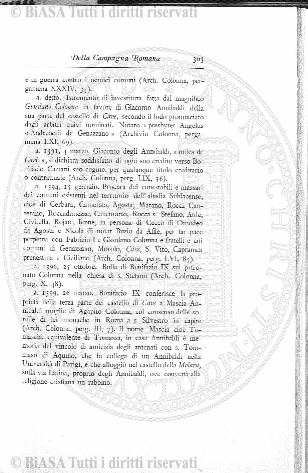 © BIASA Tutti i diritti riservati.
Della Campagna Romana 303
e in guerra contro i nemici comuni (Arch. Colonna, per-
gamena XXXIV, 33).
a. detto. Istromento di investitura fatta dal magnifico
Giordano Colonna in favore di Giacomo Annibaldi della
sua parte del castello di Cave, secondo il lodo pronunciato
dagli arbitri quivi nominati. Notaro « presbyter Angelus
Andreotii de Genazzano » (Archivio Colonna, perga-
mena LXI, 69).
a. 1391, 4 marzo. Giacomo degli Annibaldi, « miles de
», si dichiara soddisfatto di ogni suo credito verso Bo-
nifacio Caetani suo cugino, per qualunque titolo ereditario
o contrattuale (Arch. Colonna, perg. LIX, 36).
a. 1394, 25 gennaio. Procura dei conestabili e massari
dei comuni esistenti nel territorio dell'abazia Sublacense,
cioè di Cerbara, Camorata, Agosta, Marano, Rocca Can-
terano, Roccadimezzo, Canemorto, Rocca s. Stefano, Afile,
Civitella, Roiate, Ienne, in persona di Cecco di Omodeo
da Agosta e Nicola di notar Buzio da Afile, per far pace
perpetua con Fabrizio e Giordano Colonna e fratelli e coi
comuni di Genazzano, Merolo, Cave, S. Vito, Capranica
prenestina e Ciciliano (Arch. Colonna, perg. LVI, 85).
a. 1396, 25 ottobre. Bolla di Bonifazio IX sul patro-
nato Colonna nella chiesa di s. Stefano (Arch. Colonna,
perg. X, 48).
a. 1399, 26 marzo. Bonifazio IX conferisce la pro-
prietà delle terza parte del castello di Cave a Mascia An-
nibaldi moglie di Agapito Colonna, col consenso delle so-
relle di lei monache in Roma a s. Silvestro in capite
(Arch. Colonna, perg. III, 7). Il nome Mascia cioè To-
mascia, equivalente di Tomassa, in casa Annibaldi è me-
moria del vincolo di amicizia degli antenati con s. Tom-
maso di Aquino, che fu collega di un Annibaldi nella
Università di Parigi, e che alloggiò nel castello della Molara,
sulla via latina, proprio degli Annibaldi, ove convertì alla
religione cristiana un rabbino.
© BIASA Tutti i diritti riservati.